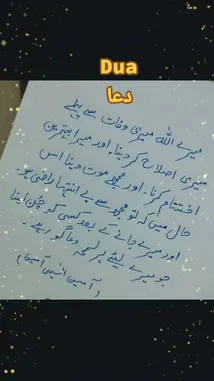 Dua
دعا
میرے اللہ میری وفات سے پہلے
میری اصلاح کر دینا۔ اور میرا بہترین
اختتام کرنا۔ اور مجھے موت دینا اس
حال میں کہ تو مجھ سے بے انتہا راضی ہو
اور میرے جانے کے بعد کسی کو چن لینا
جو میرے لیئے ہر لمحہ دعا گو رہے۔
(آمین الٰہی آمین)